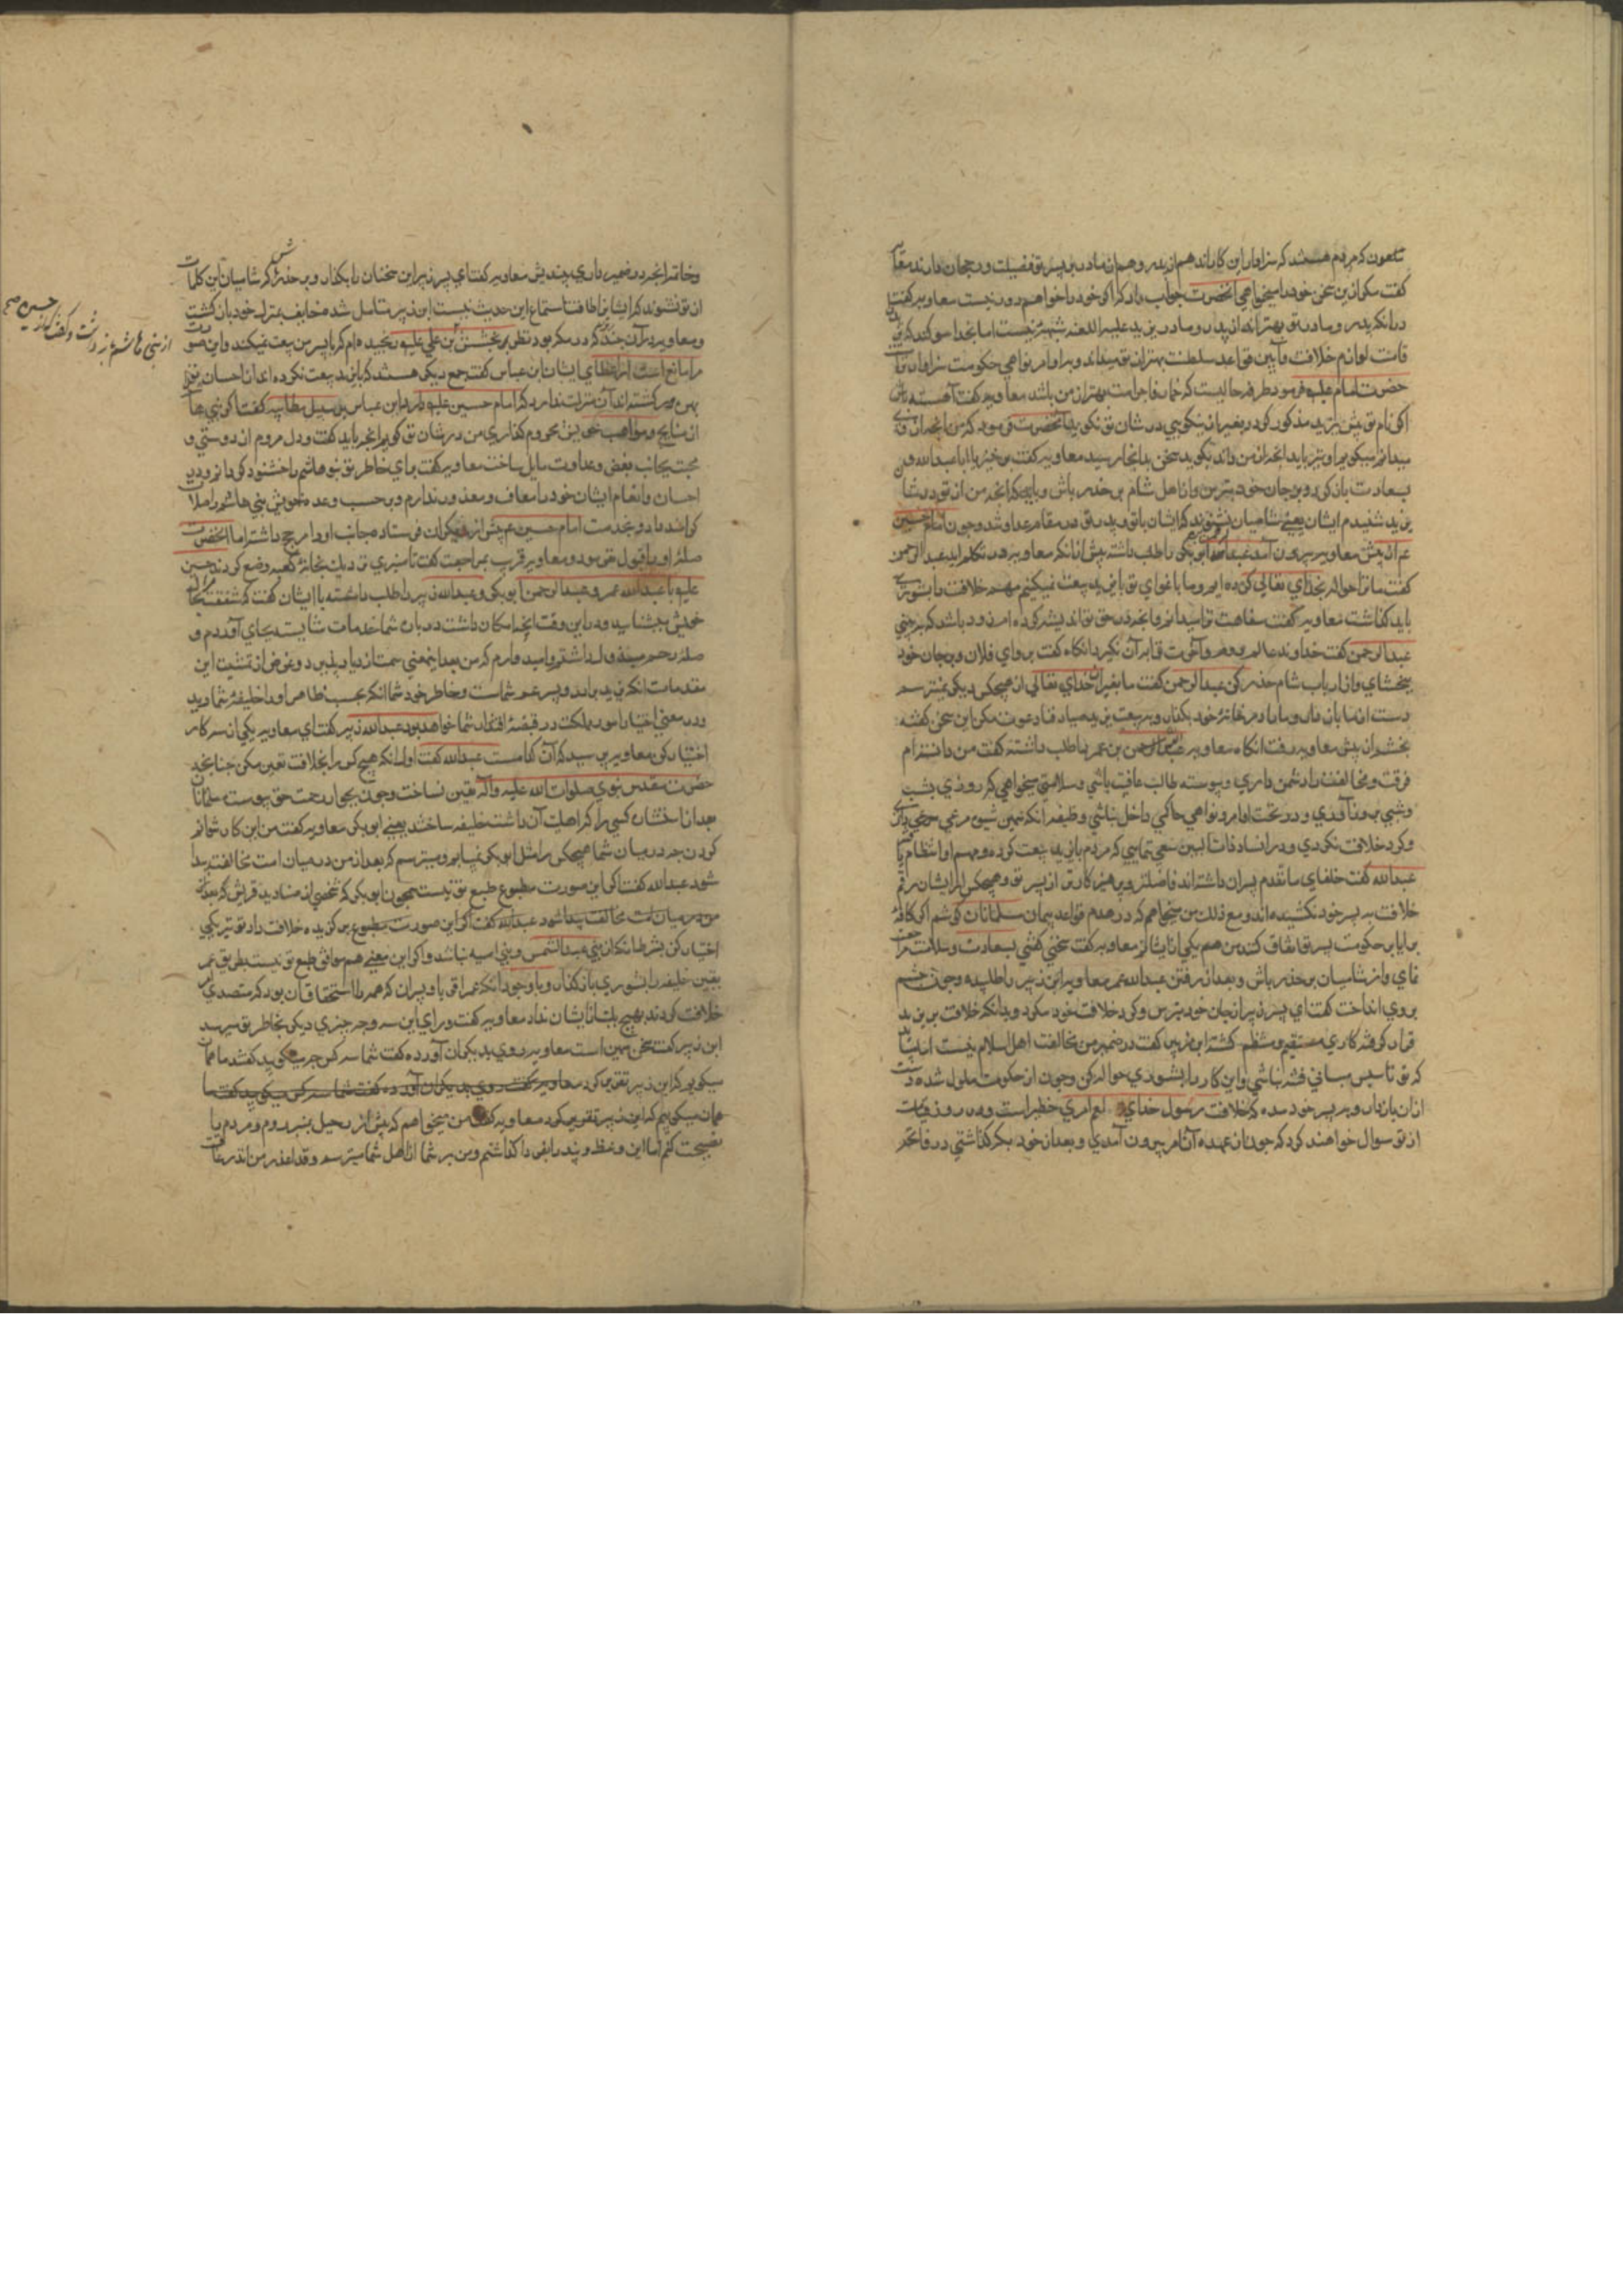 ملعون که مردم هستند که سزاوار این کاراند هم از پدر و هم از مادر بر پسر تو فضیلت و رجحان دارند معاویه
گفت مکر ازین سخن خود را میخواهی آنحضرت جواب داد که اگر خود را خواهم دور نیست معاویه گفت
در آنکه پدر و مادر تو بهتراند از پدر و مادر یزید علیه اللعنه شبهه نیست اما بخدا سوکند که
لوازم خلافت و آیین قواعد سلطنت بهتر از تو میداند و بر اوامر و نواهی حکومت سزاوارتر
حضرت امام علیه فرمود طرفه حالیست که خمار فاجر امت بهتر از من باشد معاویه گفت آهسته باش
اکر نام تو پیش یزید مذکور کردد بغیر از نیکویی در شان تو نکوید آنحضرت فرمود که من آنچه از وی
میدانم میکویم او نیز باید آنچه از من داند بکوید سخن بدانجا رسید معاویه گفت برخیز یا اباعبدالله و
بسعادت باز کرد و بر جان خود بترس و از اهل شام بر حذر باش و باید که آنچه من از تو در شان
یزید شنیدم ایشان یعنی شامیان نشنوند که ایشان با تو و پدر تو در مقام عداوتند و چون امام حسین
ع از پیش معاویه بیرون آمد عبدالرحمن ابن ابی بکر را طلب داشته پیش از آنکه معاویه در تکلم آید عبدالرحمن
گفت ما ترا حواله بخدای تعالی کرده ایم و ما باغوای تو با یزید بیعت نمیکنیم مهم خلافت را بشوری
باید کذاشت معاویه گفت سفاهت ترا میدانم و آنچه در حق تو اندیشه کرده ام زود باشد که ببینی
عبدالرحمن گفت خداوند عالم در دنیا و آخرت ترا بر آن نکیرد انکاه گفت برو ای فلان و بر جان خود
ببخشای و از ارباب شام حذر کن عبدالرحمن گفت ما بغیر از خدای تعالی از هیچکس دیکر نمیترسم
دست از ما باز دار و ما را در خانهٔ خود بکذار و به بیعت یزید میادفا دعوت مکن این سخن گفته
بخشم از پیش معاویه رفت انکاه معاویه عبدالله بن عمر را طلب داشته گفت من دانسته ام
فرقت و مخالفت را دشمن داری و پیوسته طالب عافیت باشی و سلامتی میخواهی که روزی بشب
و شبی بروز آوری و در تحت اوامر و نواهی حاکمی داخل نباشی وظیفه آنکه
و کرد خلاف نکردی و در انسداد ذات البین سعی نمایی که مردم با یزید بیعت کرده و مهم او انتظام یابد
عبدالله گفت خلفای ماتقدم پسران داشته اند فاضلتر و پرهیزکارتر از پسر تو و هیچکس از ایشان رقم
خلافت به پسر خود نکشیده اند و مع ذلک من نمیخواهم که در هدم قواعد پیمان مسلمانان کوشم اکر کافهٔ
برایا بر حکومت پسر تو اتفاق کنند من هم یکی از ایشانم معاویه گفت سخنی گفتی بسعادت و سلامت مراجعت
نمای و از شامیان بر حذر باش و بعد از رفتن عبدالله عمر معاویه ابن زبیر را طلبیده و چون چشم
بروی انداخت گفت ای پسر زبیر از جان خود بترس و کرد خلافت خود مکرد و بدانکه خلافت بر یزید
قرار کرفته کاری مستقیم و منتظم کشته ابن زبیر گفت در ضمیر من مخالفت اهل اسلام نیست اما باید
که تو تاسیس مبانی فتنه نباشی و این کار را بشوری حواله کن و چون از حکومت ملول شده دست
از آن بازدار و به پسر خود مده که خلافت رسول خدای امری خطیر است و در روز قیامت
از تو سوال خواهند کرد که چون از عهده آن امر بیرون آمدی و بعد از خود بکه کذاشتی در فاتحه
و خاتمه آنچه در ضمیر داری بیندیش معاویه گفت ای پسر زبیر این سخنان را بکذار و بر حذر باش که شامیان این کلمات
از تو نشنوند که ایشان را طاقت استماع این حدیث نیست ابن زبیر متامل شد مخایف بمنزل خود باز کشت
و معاویه در آن چند کرد مکر بود نظر بر بخشش بن علی علیه رنجیده ام که با پسر من بیعت نمیکند و این صورت
را مانع است از اعطای ایشان ابن عباس گفت جمع دیکر هستند که با یزید بیعت نکرده اند از احسان تو
بهره ور کشته اند آن منزلت ندارد که امام حسین علیه دارد ابن عباس بر سبیل مطایبه گفت اکر بنی هاشم
از منایح و مواهب خویش محروم کذاری من در شان تو کویم آنچه باید گفت و دل مردم از دوستی و
محبت بجانب بغض و عداوت مایل ساخت معاویه گفت برای خاطر تو بنو هاشم را خشنود کردانم و در
احسان و انعام ایشان خود را معاف و معذور ندارم و بر حسب وعده خویش بنی هاشم را صلات
کرامند داد و بخدمت امام حسین ع بیش از دیکران فرستاد و جانب او را مرجح داشت اما آنحضرت
صلهٔ او را قبول نفرمود و معاویه قرب بمراجعت گفت تا منبری نزدیک بخانهٔ کعبه وضع کردند حسین
علیه با عبدالله عمر و عبدالرحمن ابوبکر و عبدالله زبیر را طلب داشته با ایشان گفت که شفقت بجای
خویش بشناسید و در این وقت آنچه امکان داشت در باب شما خدمات شایسته بجای آوردم و
صلهٔ رحم مبذول داشتم و امیدوارم که من بعد اینمعنی سمت ازدیاد پذیرد و غرض از تمشیت این
مقدمات آنکه یزید برادر و پسر عم شماست و خاطر خود شما آنکه بحسب ظاهر او را خلیفهٔ شما دید
و در معنی اختیار امور مملکت در قبضهٔ اقتدار شما خواهد بود عبدالله زبیر گفت ای معاویه یکی از سه کار
اختیار کن معاویه پرسید که آن کدامست عبدالله گفت اول آنکه هیچ کس را بخلافت تعیین مکن چنانچه
حضرت مقدس نبوی صلوات الله علیه و آله تعیین نساخت و چون بجوار رحمت حق پیوست مسلمانان
بعد از آنحضرت کسی را که اهلیت آن داشت خلیفه ساختند یعنی ابوبکر معاویه گفت من این کار نتوانم
کردن چه در میان شما هیچکس را مثل ابی بکر نمییابم و میترسم که بعد از من در میان امت مخالفت پیدا
شود عبدالله گفت اکر این صورت مطبوع طبع تو نیست همچون ابوبکر که شخصی از صنادید قریش که بعد از
من در میان امت مخالفت پیدا شود عبدالله گفت اکر این صورت مطبوع برکزیده خلافت داد تو نیز یکی
اختیار کن بشرط آنکه از بنی عبدالشمس و بنی امیه نباشد و اکر این معنی هم موافق طبع تو نیست بطریق عمر
تعیین خلیفه را بشوری باز کذار و با وجود آنکه عمر اقربا و پسران که همه را استحقاق آن بود که متصدی امر
خلافت کردند هیچ یک از ایشان نداد معاویه گفت ورای این سه وجه چیزی دیکر بخاطر تو میرسد
ابن زبیر گفت سخن همین است معاویه روی بدیکران آورده گفت شما سه کس چه میکویید گفتند ما همان
میکوییم که ابن زبیر تقریر کرد معاویه گفت روی بدیکران آورده گفت شما سه کس میکویید گفت ما
همان میکوییم که ابن زبیر تقریر کرد معاویه گفت من میخواهم که پیش از رحیل بمنبر روم و مردم را
نصیحت کنم اما این وعظ و پند را بفردا کذاشتم و من بر شما از اهل شما میترسم و قد اعذر من انذر
از بنی هاشم ع برداشت و گفت که از حسین صح